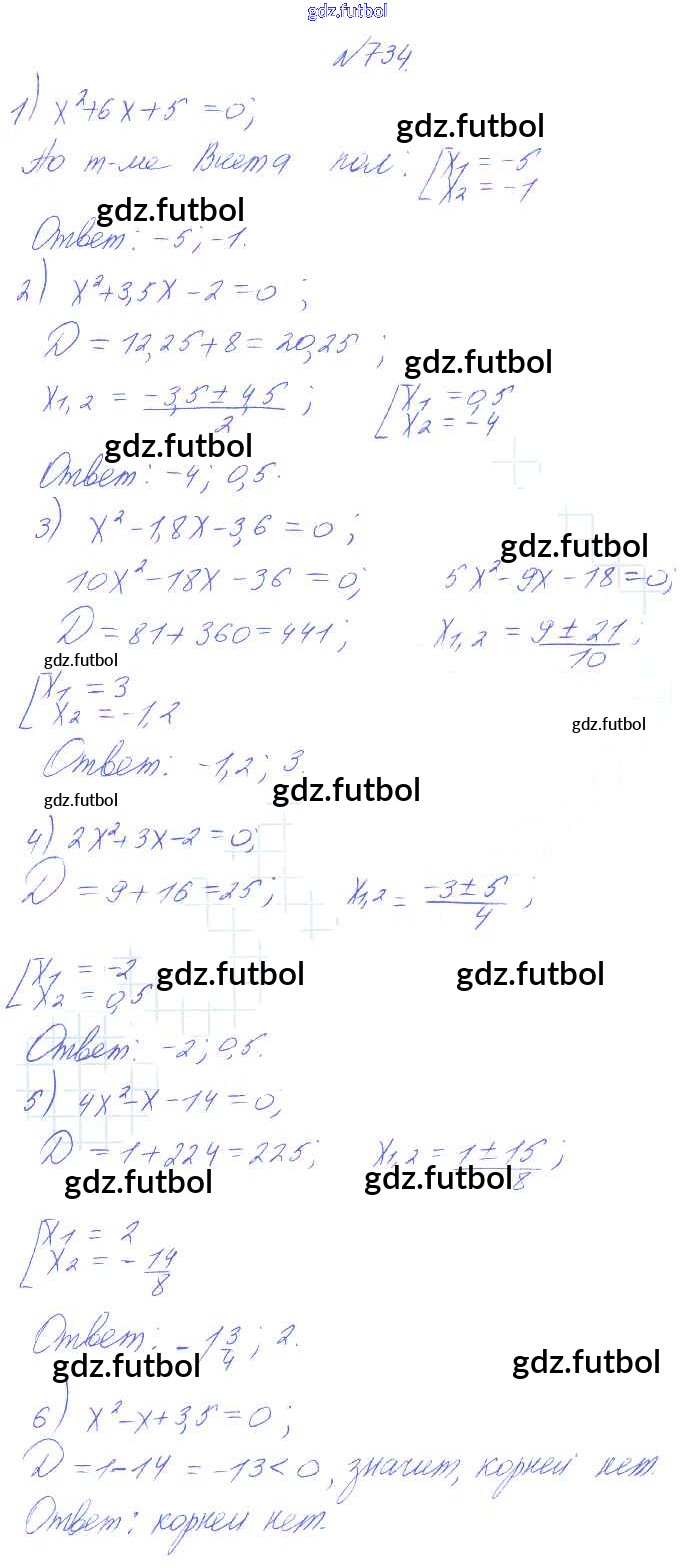 gdz.futbol
№734.
1) x²+6x+5=0;
gdz.futbol
По т-ме Виета кол: [x₁ = -5
x₂ = -1
gdz.futbol
Ответ: -5; -1.
2) x²+3,5x-2=0;
D = 12,25+8=20,25;
gdz.futbol
x₁,₂ = (-3,5±4,5)/2; [x₁ = 0,5
x₂ = -4
gdz.futbol
Ответ: -4; 0,5.
3) x²-1,8x-3,6=0;
gdz.futbol
10x²-18x-36=0; 5x²-9x-18=0;
D=81+360=441; x₁,₂ = (9±21)/10;
gdz.futbol
[x₁ = 3
x₂ = -1,2
gdz.futbol
Ответ: -1,2; 3.
gdz.futbol
gdz.futbol
4) 2x²+3x-2=0;
D = 9+16=25; x₁,₂ = (-3±5)/4;
[x₁ = -2
x₂ = 0,5
gdz.futbol gdz.futbol
Ответ: -2; 0,5.
5) 4x²-x-14=0;
D = 1+224=225; x₁,₂ = (1±15)/8;
gdz.futbol gdz.futbol
[x₁ = 2
x₂ = -14/8
Ответ: -1 3/4; 2.
gdz.futbol gdz.futbol
6) x²-x+3,5=0;
D=1-14=-13<0, значит, корней нет.
Ответ: корней нет.